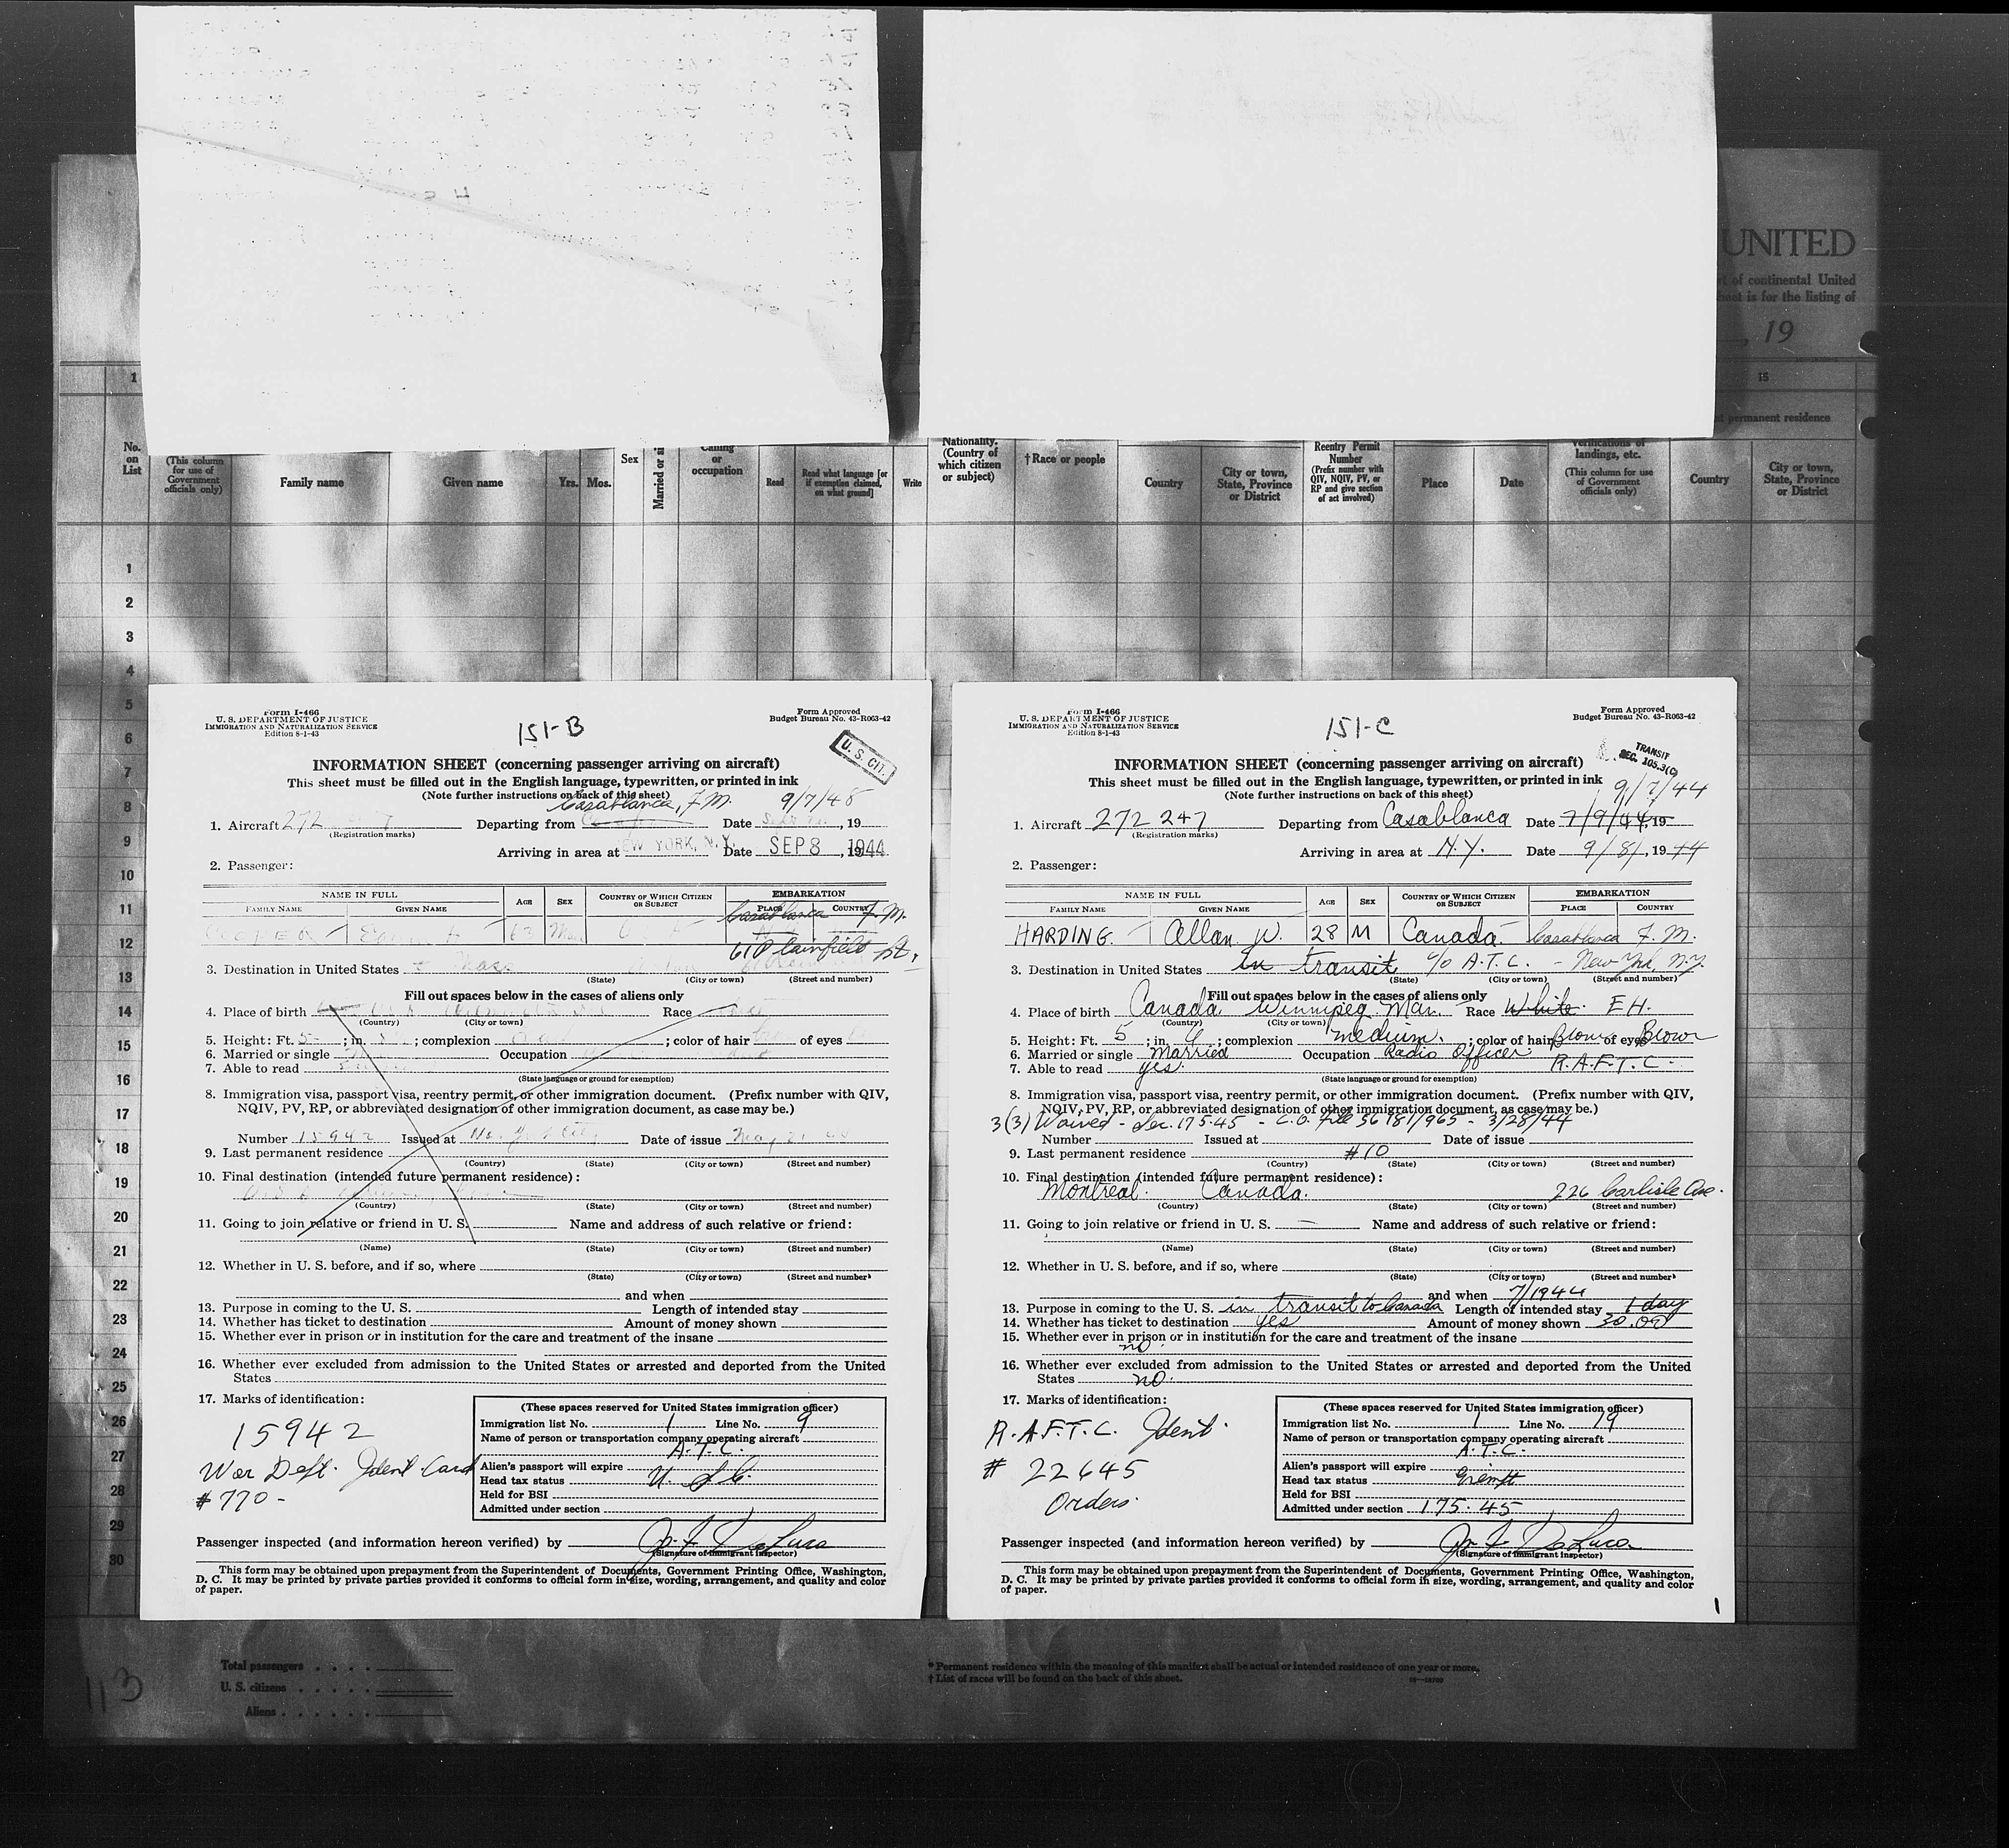 UNITED
t of continental United
heet is for the listing of
, 19
1
15
t permanent residence
No.
on
List
(This column
for use of
Government
officials only)
Family name
Given name
Yrs.
Mos.
Sex
Married or si
Calling
or
occupation
Read
Read what language [or
if exemption claimed,
on what ground]
Write
Nationality.
(Country of
which citizen
or subject)
†Race or people
Country
City or town,
State, Province
or District
Reentry Permit
Number
(Prefix number with
QIV, NQIV, PV, or
RP and give section
of act involved)
Place
Date
Verifications of
landings, etc.
(This column for use
of Government
officials only)
Country
City or town,
State, Province
or District
1
2
3
4
5
6
7
8
9
10
11
12
13
14
15
16
17
18
19
20
21
22
23
24
25
26
27
28
29
30
Form I-466
U. S. DEPARTMENT OF JUSTICE
IMMIGRATION AND NATURALIZATION SERVICE
Edition 8-1-43
151-B
Form Approved
Budget Bureau No. 43-R063-42
U. S. CIT.
INFORMATION SHEET (concerning passenger arriving on aircraft)
This sheet must be filled out in the English language, typewritten, or printed in ink
(Note further instructions on back of this sheet)
Casablanca, F.M. 9/7/45
1. Aircraft 272 Departing from Date , 19
(Registration marks)
Arriving in area at NEW YORK, N.Y. Date SEP 8 , 1944
2. Passenger:
NAME IN FULL AGE SEX COUNTRY OF WHICH CITIZEN OR SUBJECT EMBARKATION
FAMILY NAME GIVEN NAME PLACE COUNTRY
Casablanca F.M.
610 Plainfield St.
3. Destination in United States Mass
(State) (City or town) (Street and number)
Fill out spaces below in the cases of aliens only
4. Place of birth Race
(Country) (City or town)
5. Height: Ft. 5 ; in. ; complexion ; color of hair of eyes
6. Married or single Occupation
7. Able to read
(State language or ground for exemption)
8. Immigration visa, passport visa, reentry permit, or other immigration document. (Prefix number with QIV,
NQIV, PV, RP, or abbreviated designation of other immigration document, as case may be.)
Number 15942 Issued at New York City Date of issue May
9. Last permanent residence
(Country) (State) (City or town) (Street and number)
10. Final destination (intended future permanent residence):
(Country) (State) (City or town) (Street and number)
11. Going to join relative or friend in U. S. Name and address of such relative or friend:
(Name) (State) (City or town) (Street and number)
12. Whether in U. S. before, and if so, where
(State) (City or town) (Street and number)
and when
13. Purpose in coming to the U. S. Length of intended stay
14. Whether has ticket to destination Amount of money shown
15. Whether ever in prison or in institution for the care and treatment of the insane
16. Whether ever excluded from admission to the United States or arrested and deported from the United
States
17. Marks of identification:
15942
War Dept. Ident. Card
# 770 -
(These spaces reserved for United States immigration officer)
Immigration list No. 1 Line No. 9
Name of person or transportation company operating aircraft
A.T.C.
Alien's passport will expire
Head tax status U.S.C.
Held for BSI
Admitted under section
Passenger inspected (and information hereon verified) by
(Signature of immigrant inspector)
This form may be obtained upon prepayment from the Superintendent of Documents, Government Printing Office, Washington,
D. C. It may be printed by private parties provided it conforms to official form in size, wording, arrangement, and quality and color
of paper.
Form I-466
U. S. DEPARTMENT OF JUSTICE
IMMIGRATION AND NATURALIZATION SERVICE
Edition 8-1-43
151-C
Form Approved
Budget Bureau No. 43-R063-42
TRANSIT
SEC. 105.3(C)
INFORMATION SHEET (concerning passenger arriving on aircraft)
This sheet must be filled out in the English language, typewritten, or printed in ink
(Note further instructions on back of this sheet)
9/7/44
1. Aircraft 272 247 Departing from Casablanca Date 7/9/44, 19
(Registration marks)
Arriving in area at N.Y. Date 9/8/, 19 44
2. Passenger:
NAME IN FULL AGE SEX COUNTRY OF WHICH CITIZEN OR SUBJECT EMBARKATION
FAMILY NAME GIVEN NAME PLACE COUNTRY
HARDING. Allan W. 28 M Canada. Casablanca F.M.
3. Destination in United States in transit c/o A.T.C. - New York, N.Y.
(State) (City or town) (Street and number)
Fill out spaces below in the cases of aliens only
4. Place of birth Canada Winnipeg. Man. Race White. EH.
(Country) (City or town)
5. Height: Ft. 5 ; in. ; complexion medium. ; color of hair Brown of eyes Brown
6. Married or single Married Occupation Radio Officer
7. Able to read yes. R.A.F.T.C.
(State language or ground for exemption)
8. Immigration visa, passport visa, reentry permit, or other immigration document. (Prefix number with QIV,
NQIV, PV, RP, or abbreviated designation of other immigration document, as case may be.)
3(3) Waived - Sec. 175.45 - C.O. File 56181/965 - 3/28/44
Number Issued at Date of issue
9. Last permanent residence #10
(Country) (State) (City or town) (Street and number)
10. Final destination (intended future permanent residence):
Montreal. Canada. 226 Carlisle Ave.
(Country) (State) (City or town) (Street and number)
11. Going to join relative or friend in U. S. — Name and address of such relative or friend:
(Name) (State) (City or town) (Street and number)
12. Whether in U. S. before, and if so, where
(State) (City or town) (Street and number)
and when 7/1944
13. Purpose in coming to the U. S. in transit to Canada Length of intended stay 1 day
14. Whether has ticket to destination yes Amount of money shown 30.00
15. Whether ever in prison or in institution for the care and treatment of the insane
no.
16. Whether ever excluded from admission to the United States or arrested and deported from the United
States no.
17. Marks of identification:
R.A.F.T.C. Ident.
# 22645
Orders.
(These spaces reserved for United States immigration officer)
Immigration list No. 1 Line No. 19
Name of person or transportation company operating aircraft
A.T.C.
Alien's passport will expire
Head tax status Exempt
Held for BSI
Admitted under section 175.45
Passenger inspected (and information hereon verified) by
(Signature of immigrant inspector)
This form may be obtained upon prepayment from the Superintendent of Documents, Government Printing Office, Washington,
D. C. It may be printed by private parties provided it conforms to official form in size, wording, arrangement, and quality and color
of paper.
1
113
Total passengers
U. S. citizens
Aliens
* Permanent residence within the meaning of this manifest shall be actual or intended residence of one year or more.
† List of races will be found on the back of this sheet.